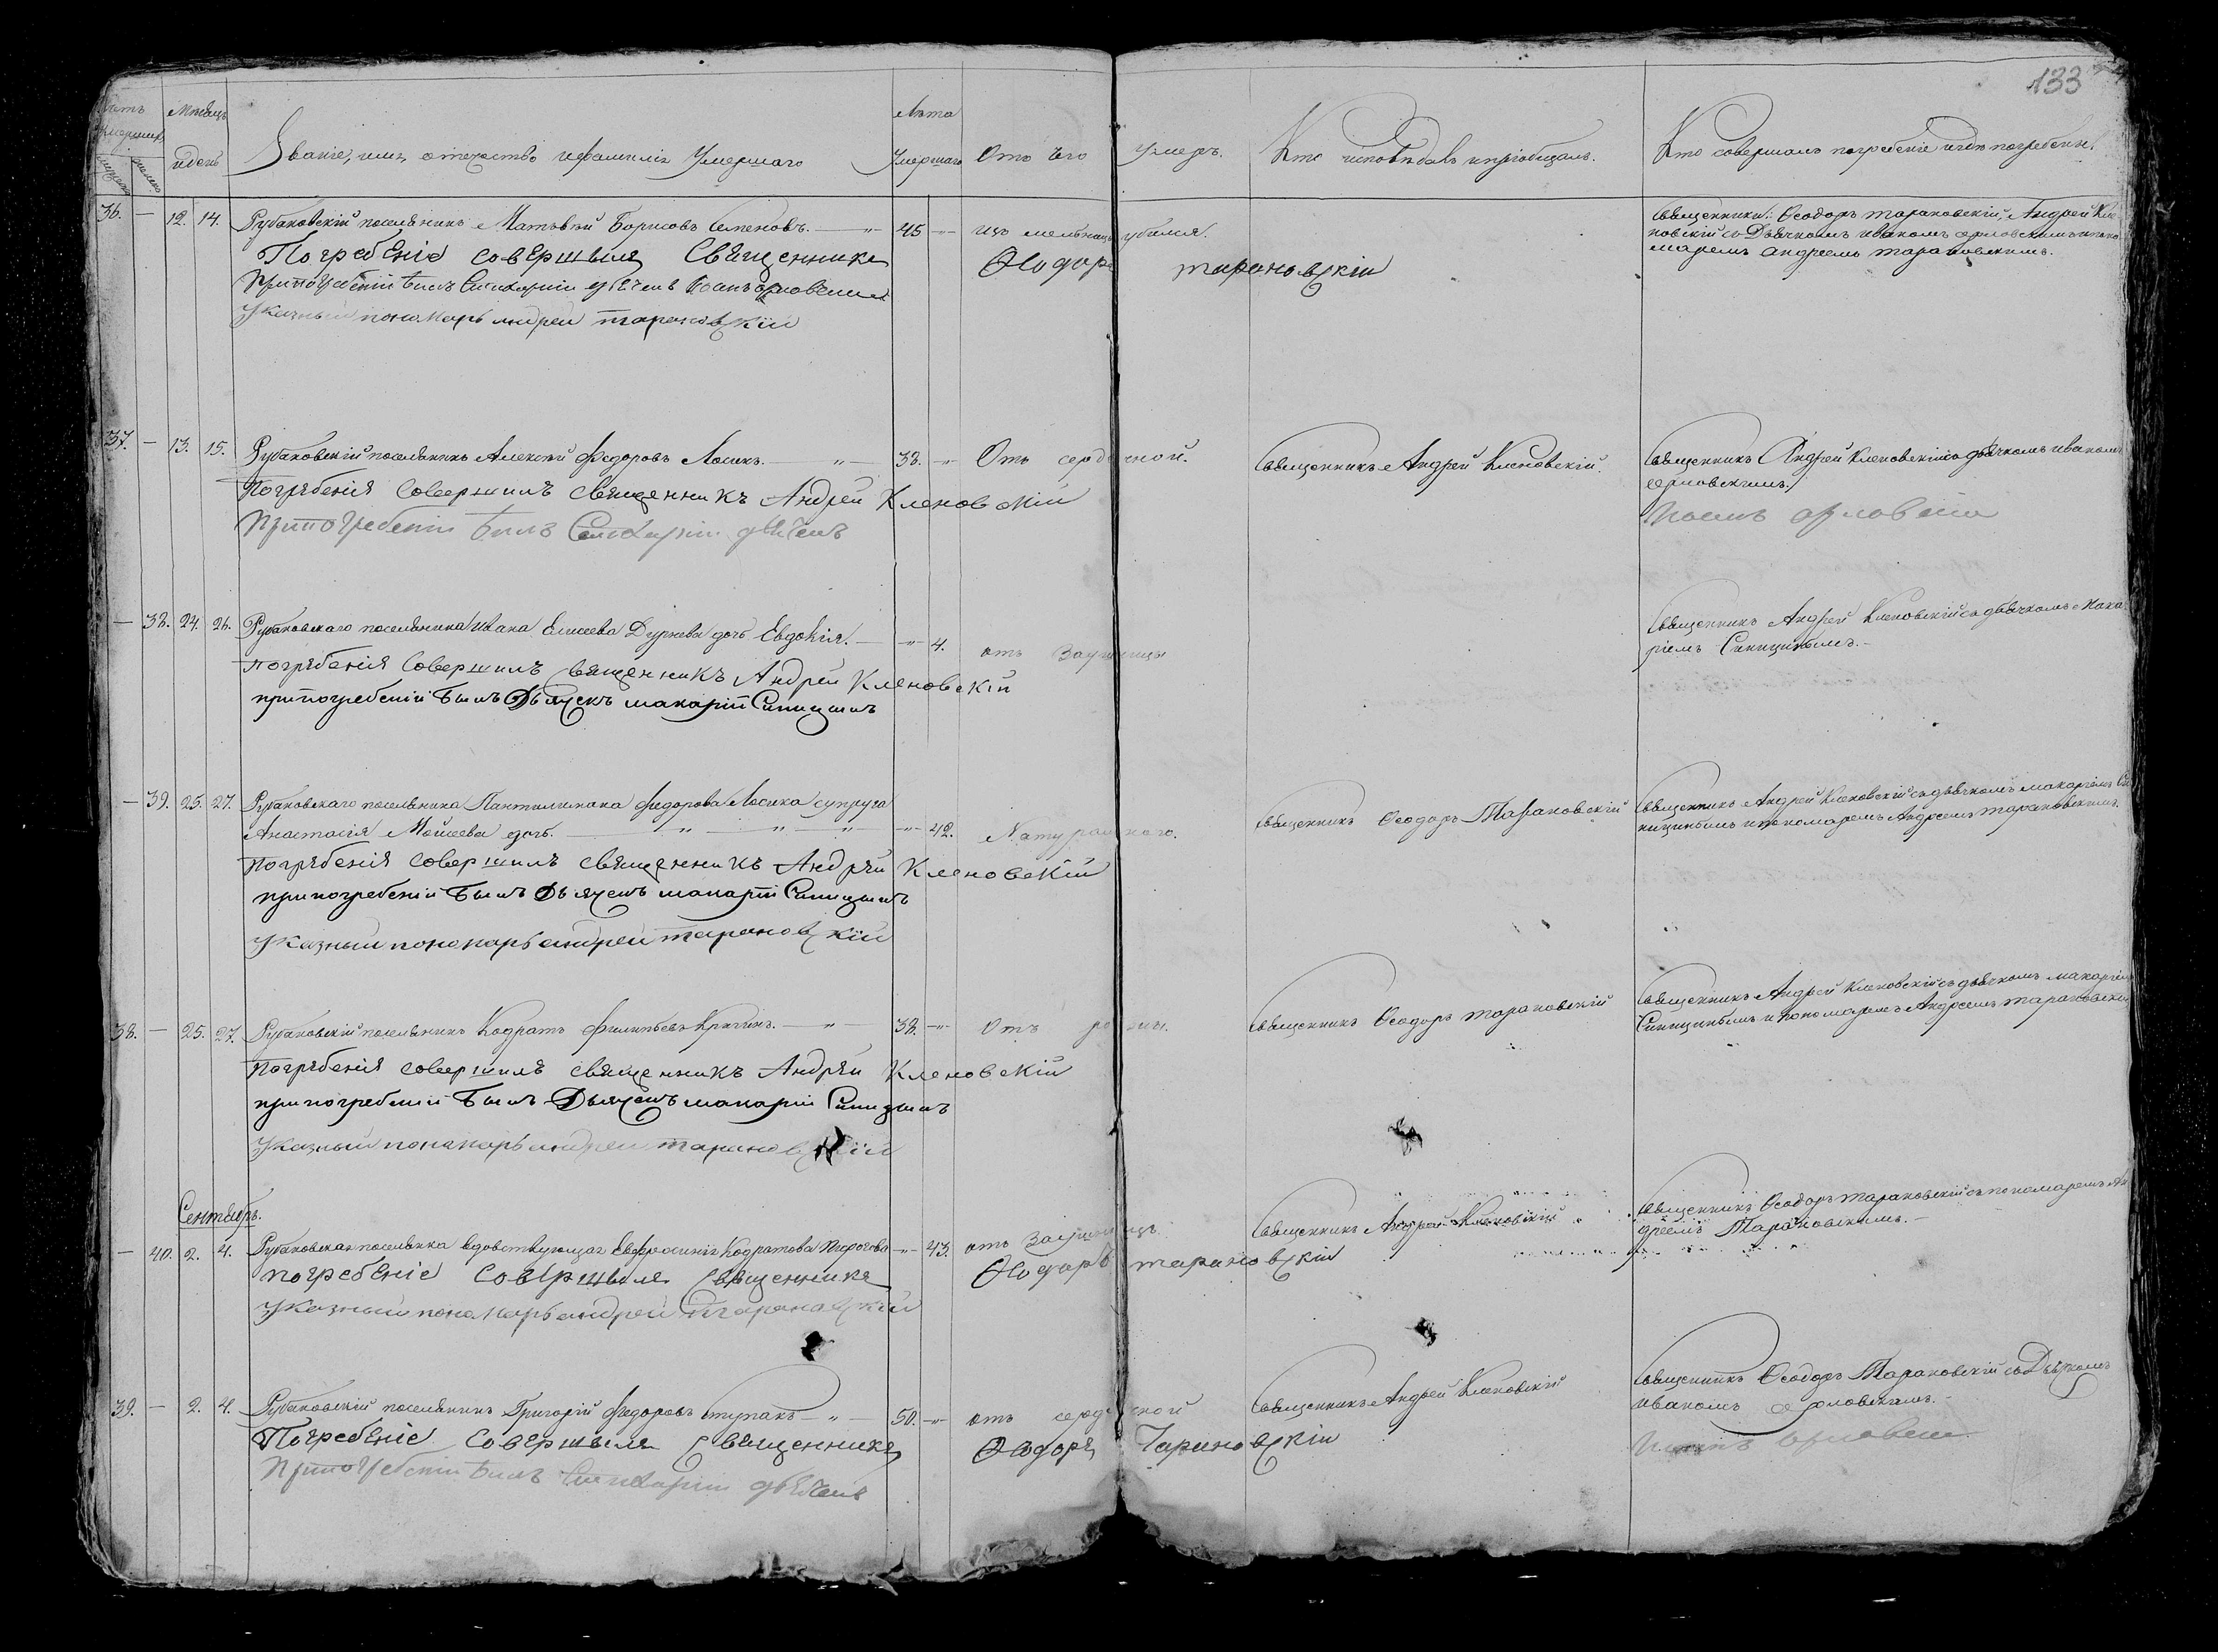 133
Мѣсяцъ
и день
Званіе, имя, отечество и фамилія Умершаго
Лѣта
Умершаго
Отъ чего умеръ.
Кто исповѣдалъ и пріобщалъ.
Кто совершалъ погребеніе и гдѣ погребены.
36. — 12. 14. Рубановскій поселянинъ Матвѣй Борисовъ Семеновъ. — 45 — убился.
Священники: Ѳеодоръ Тарановскій, Андрей Кле-
новскій съ Дьячкомъ Иваномъ Орловскимъ и поно-
маремъ Андреемъ Тарановскимъ.
Погребеніе совершилъ Священникъ Ѳеодоръ Тарановскій
При погребеніи былъ дьячекъ Орловскій
Указный пономарь Андрей Тарановскій
37. — 13. 15. Рубановскій поселянинъ Алексѣй Федоровъ Лосикъ. — 38. — Отъ сердечной.
Священникъ Андрей Кленовскій.
Священникъ Андрей Кленовскій съ дьячкомъ Иваномъ
Орловскимъ.
Погрѣбенія совершилъ священникъ Андрей Кленовскій
При погребеніи былъ дьячекъ Иванъ Орловскій
— 38. 24. 26. Рубановскаго поселянина Ивана Елисеева Дурнева дочь Евдокія. — 4. отъ Заушницы
Священникъ Андрей Кленовскій съ дьячкомъ Мака-
ріемъ Синицинымъ. —
погрѣбенія совершилъ священникъ Андрей Кленовскій
при погребеніи былъ Дьячекъ Макарій Синицынъ
— 39. 25. 27. Рубановскаго поселянина Пантилимана Федорова Лосика супруга
Анастасія Мойсеева дочь. — 42. Натуральнаго.
Священникъ Ѳеодоръ Тарановскій
Священникъ Андрей Кленовскій съ дьячкомъ Макаріемъ Си-
ницинымъ и пономаремъ Андреемъ Тарановскимъ.
погрѣбенія совершилъ священникъ Андрѣй Кленовскій
при погребеніи былъ Дьячекъ Макарій Синицынъ
Указный пономарь Андрей Тарановскій
38. — 25. 27. Рубановскій поселянинъ Кодратъ Филипьевъ — 38. — Отъ
Священникъ Ѳеодоръ Тарановскій
Священникъ Андрей Кленовскій съ дьячкомъ Макаріемъ
Синицинымъ и пономаремъ Андреемъ Тарановским
Погрѣбенія совершилъ священникъ Андрѣй Кленовскій
при погребеніи былъ Дьячекъ Макарій Синицынъ
Указный пономарь Андрей Тарановскій
Сентябрь.
— 40. 2. 4. Рубановская поселянка вдовствующая Евфросинія Кодратова — 43. отъ Заушницъ
Священникъ Андрей Кленовскій
Священникъ Ѳеодоръ Тарановскій съ пономаремъ Ан-
дреемъ Тарановскимъ. —
погребеніе совершилъ Священникъ Ѳеодоръ Тарановскій
Указный пономарь Андрей Тарановскій
39. — 2. 4. Рубановскій поселянинъ Григорій Федоровъ Ступакъ — 50. — отъ сердечной
Священникъ Андрей Кленовскій
Священникъ Ѳеодоръ Тарановскій съ Дьячкомъ
Иваномъ Орловскимъ. —
Погребеніе совершилъ Священникъ Ѳеодоръ Тарановскій
При погребеніи былъ дьячекъ Иванъ Орловскій